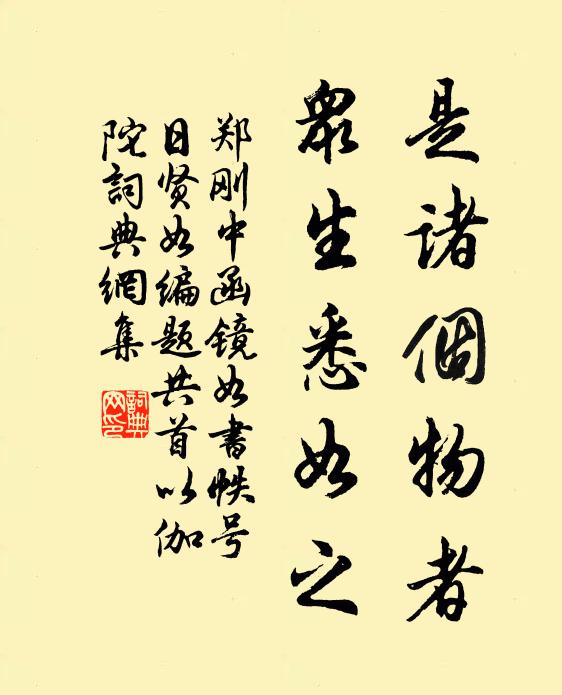 是諸個物者
眾生悉如之
郑刚中函镜如书帙号
日贤如编题共首以伽
陀詞典網集
詞典網印